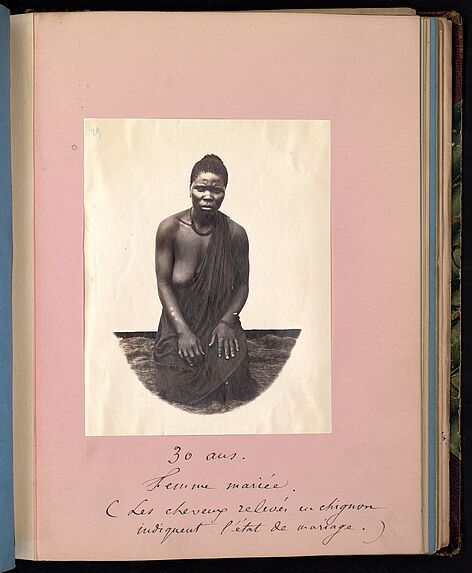 29
30 ans.
Femme mariée.
( Les cheveux relevés en chignon
indiquent l'état de mariage. )